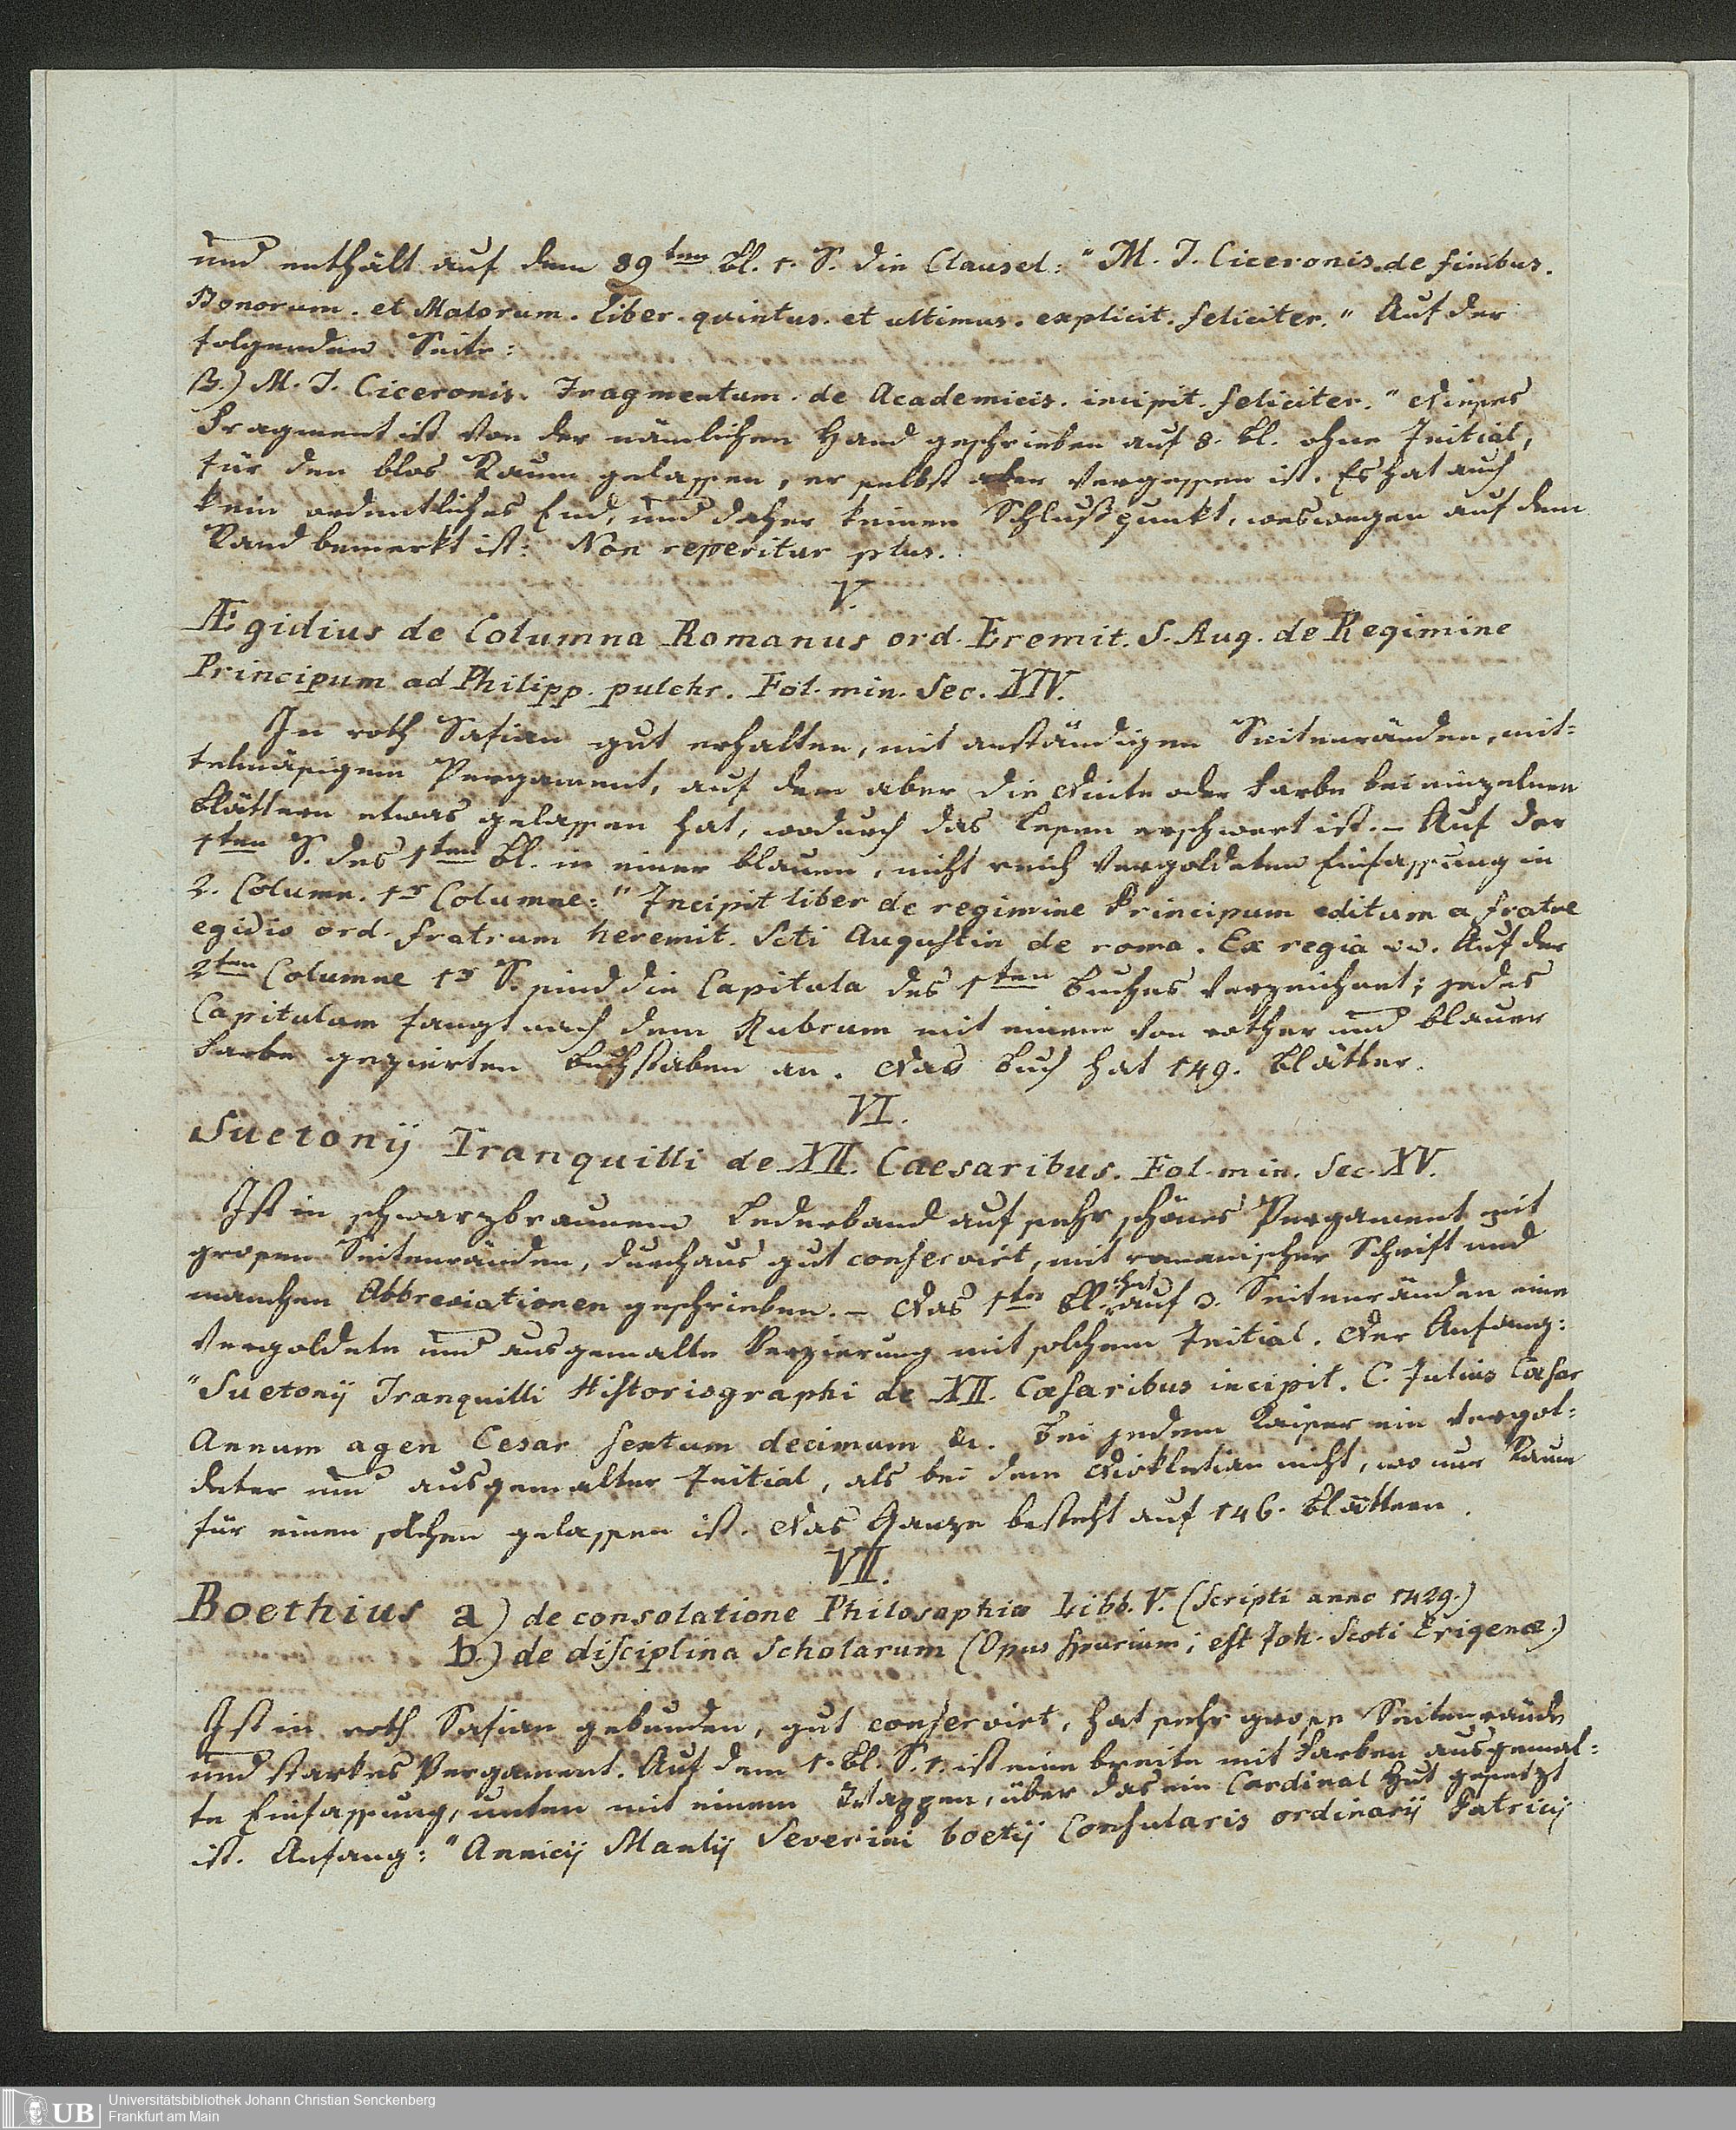 und enthält auf dem 89ten Bl. 1. S. die Clausel: "M. T. Ciceronis. de finibus.
Bonorum. et Malorum. Liber. quintus. et ultimus. explicit. feliciter." Auf der
folgenden Seite:
B.) M. T. Ciceronis. Fragmentum. de Academicis. incipit. feliciter." Dieses
Fragment ist von der nämlichen Hand geschrieben auf 8. Bl. ohne Initial,
für den blos Raum gelassen, er selbst aber vergessen ist. Es hat auch
kein ordentliches End, und daher keinen Schlußpunkt, weswegen auf dem
Rand bemerkt ist: Non reperitur plus.
V.
Ægidius de Columna Romanus ord. Eremit. S. Aug. de Regimine
Principum ad Philipp. pulchr. Fol. min. Sec. XIV.
In roth Safian gut erhalten, mit anständigen Seitenränden, mit-
telmäsigem Pergament, auf dem aber die Dinte oder Farbe bei einzelnen
Blättern etwas gelassen hat, wodurch das Lesen erschwert ist. – Auf der
1ten S. des 1ten Bl. in einer blauen, nicht reich vergoldeten Einfassung in
2. Column. 1r Columne: "Incipit liber de regimine Principum editum a fratre
egidio ord. fratrum heremit. Scti Augustin de roma. Ex regia Auf der
2ten Columne 1r S. sind die Capitula des 1ten Buches verzeichnet; jedes
Capitulum fangt nach dem Rubrum mit einem von rother und blauer
Farbe gezierten Buchstaben an. Das Buch hat 149. Blätter.
VI.
Suetonij Tranquilli de XII. Caesaribus. Fol. min. Sec. XV.
Ist in schwarzbraunem Lederband auf sehr schönes Pergament mit
grosen Seitenränden, durchaus gut conservirt, mit romanischer Schrift und
manchen Abbreviationen geschrieben. – Das 1te Bl. hat auf 3. Seitenränden eine
vergoldete und ausgemalte Verzierung mit solchem Initial. Der Anfang:
"Suetonij Tranquilli Historiographi de XII. Cæsaribus incipit. C. Julius Cæsar
Annum agen Cesar sextum decimum &c. Bei jedem Kaiser ein vergol-
deter und ausgemalter Initial, als bei dem Diokletian nicht, wo nur Raum
für einen solchen gelassen ist. Das Ganze besteht auf 146. Blättern.
VII.
Boethius a) de consolatione Philosophiæ Libb. V. (Scripti anno 1429.)
b.) de disciplina Scholarum (Opus spurium; est Joh. Scoti Erigenæ.)
Ist in roth Safian gebunden, gut conservirt, hat sehr grose Seitenrände
und starkes Pergament. Auf dem 1. Bl. S. 1. ist eine breite mit Farben ausgemal-
te Einfassung, unten mit einem Wappen, über das ein Cardinal Hut gesetzt
ist. Anfang: "Annicij Manlij Severini boetij Consularis ordinarij Patricij
Universitätsbibliothek Johann Christian Senckenberg
Frankfurt am Main
UB